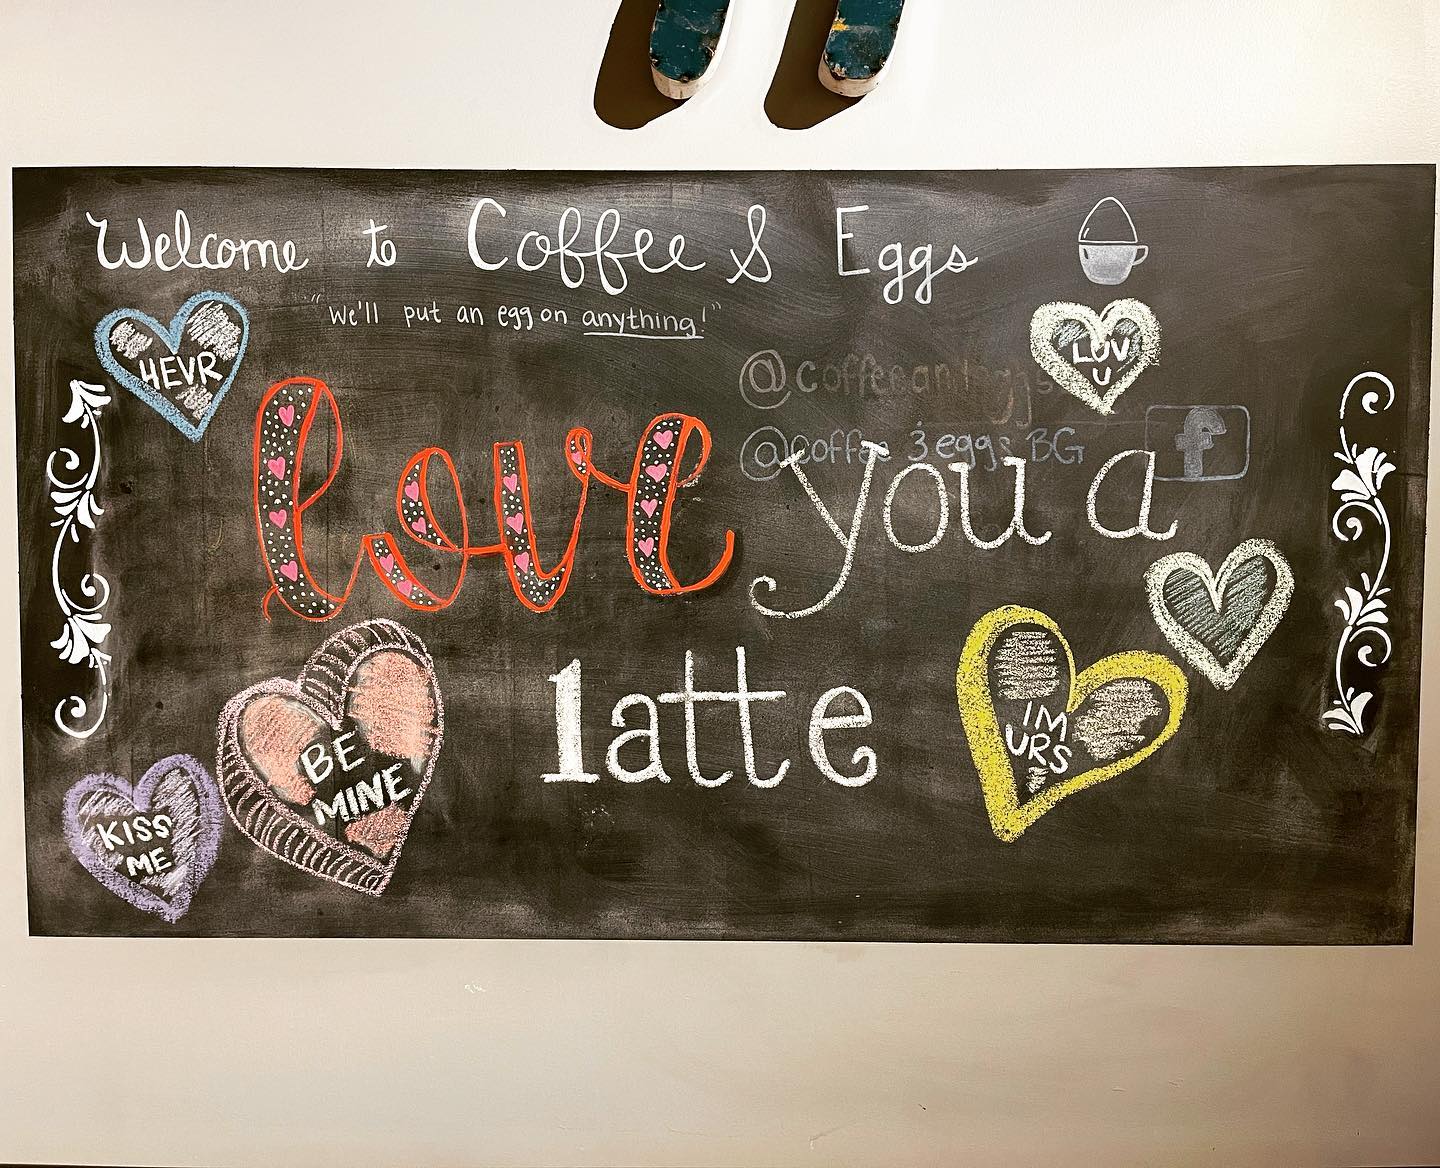 Welcome to Coffee & Eggs
"we'll put an egg on anything!"
HEVR
LUV
U
@coffeeandeggs
@coffee & eggs BG f
love you a
latte
BE
MINE
IM
URS
KISS
ME